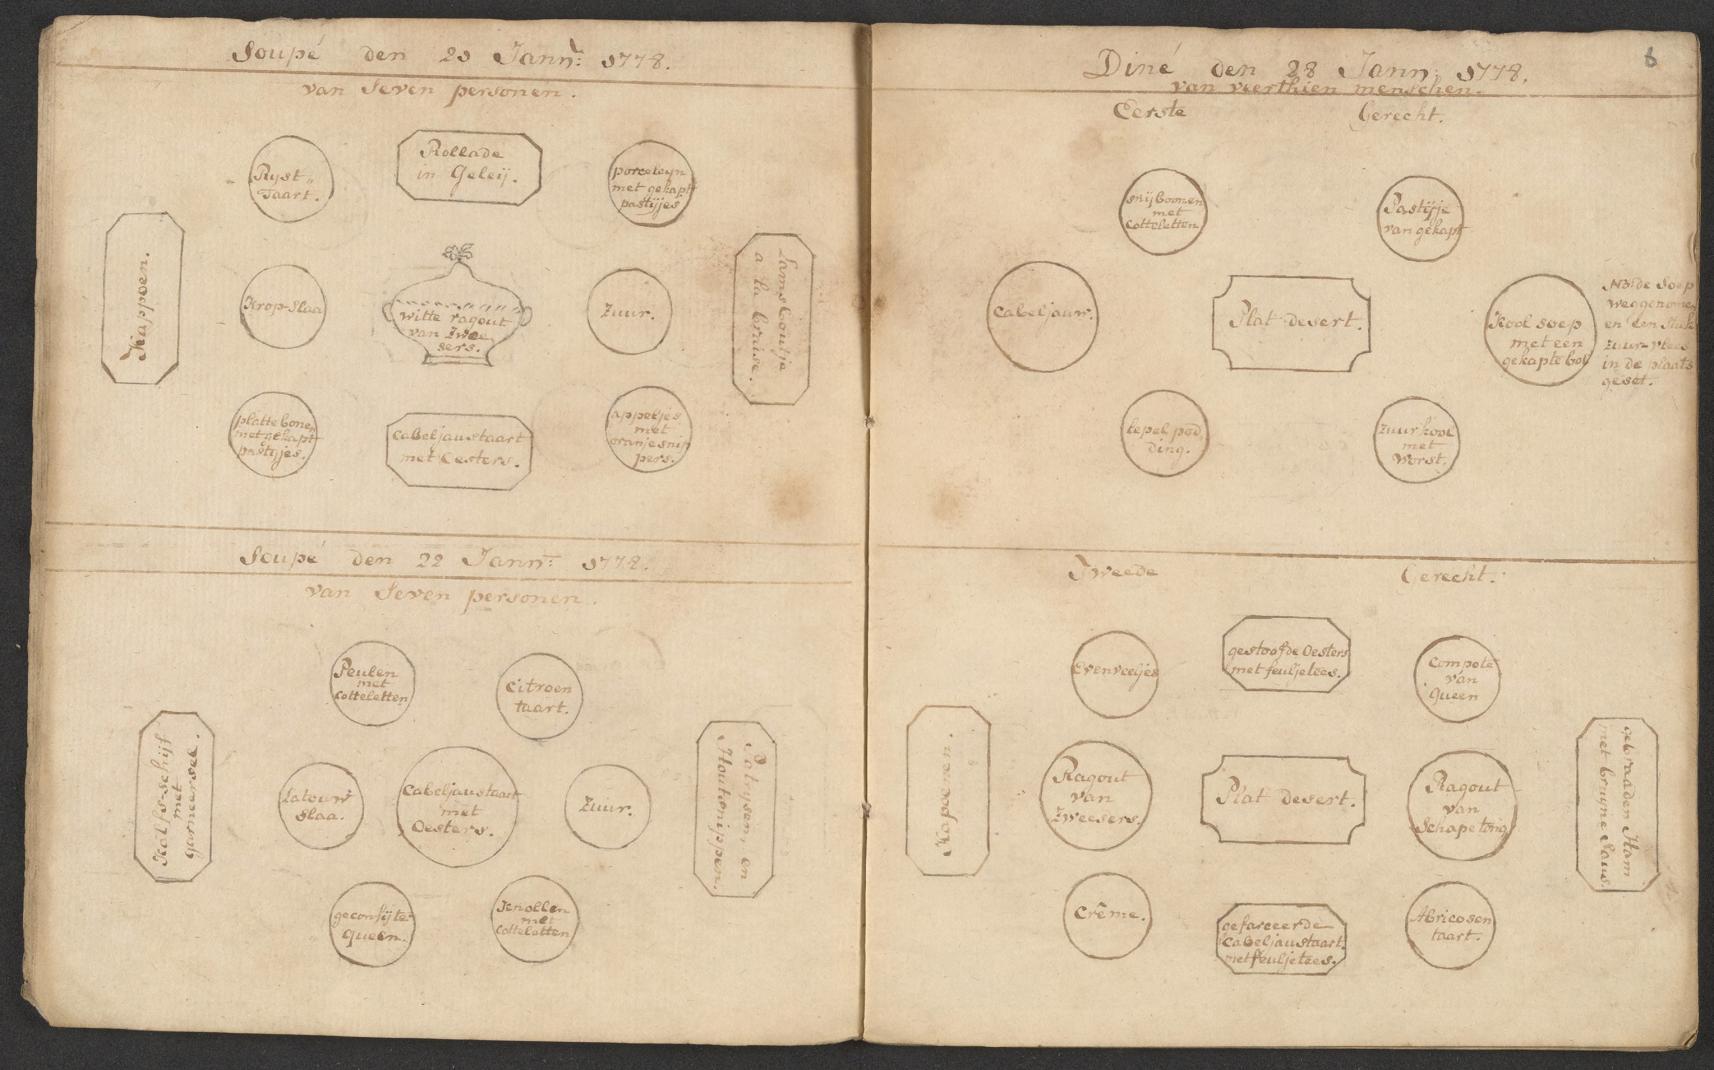 Soupé den 23 Jann: 1778.
van Seven personen.
Ryst„
Taart.
Rollade
in Geleij.
porceleyn
met gekapt
pastijjes
Kappoen.
Krop-Slaa
witte ragout
van Zwee
sers.
Zuur.
Lamsboutje
a la braise.
platte bonen
met gekapt
pastijjes.
Cabeljaustaart
met Oesters.
appeljes
met
oranjesnip
pers.
Soupé den 22 Jann: 1778.
van Seven personen.
Peulen
met
Cotteletten
Citroen
taart.
Kalfs-schijf
met
garneersel.
Latouw
Slaa.
Cabeljaustaart
met
Oesters.
Zuur.
Patrysen, en
Houtsnippen.
geconfijte
queen.
Knollen
met
Cotteletten
8
Diné den 28 Jann: 1778.
van veerthien menschen.
Eerste Gerecht.
snijboonen
met
Cotteletten
Pastijje
van gekapt
Cabeljauw.
Plat desert.
Kool soep
met een
gekapte bol
NB: de Soep
weggenomen
en een stuk
Zuur-vlees
in de plaats
geset.
lepel pod
ding.
Zuurkool
met
Worst.
Tweede Gerecht.
Evenveeljes
gestoofde Oesters
met feuljetees.
Compote
van
Queen
Kapoenen.
Ragout
van
Zweesers.
Plat desert.
Ragout
van
Schapetong
gebraaden Ham
met bruyne Saus.
Crême.
gefarceerde
Cabeljaustaart.
met feuljetees.
Abricosen
taart.